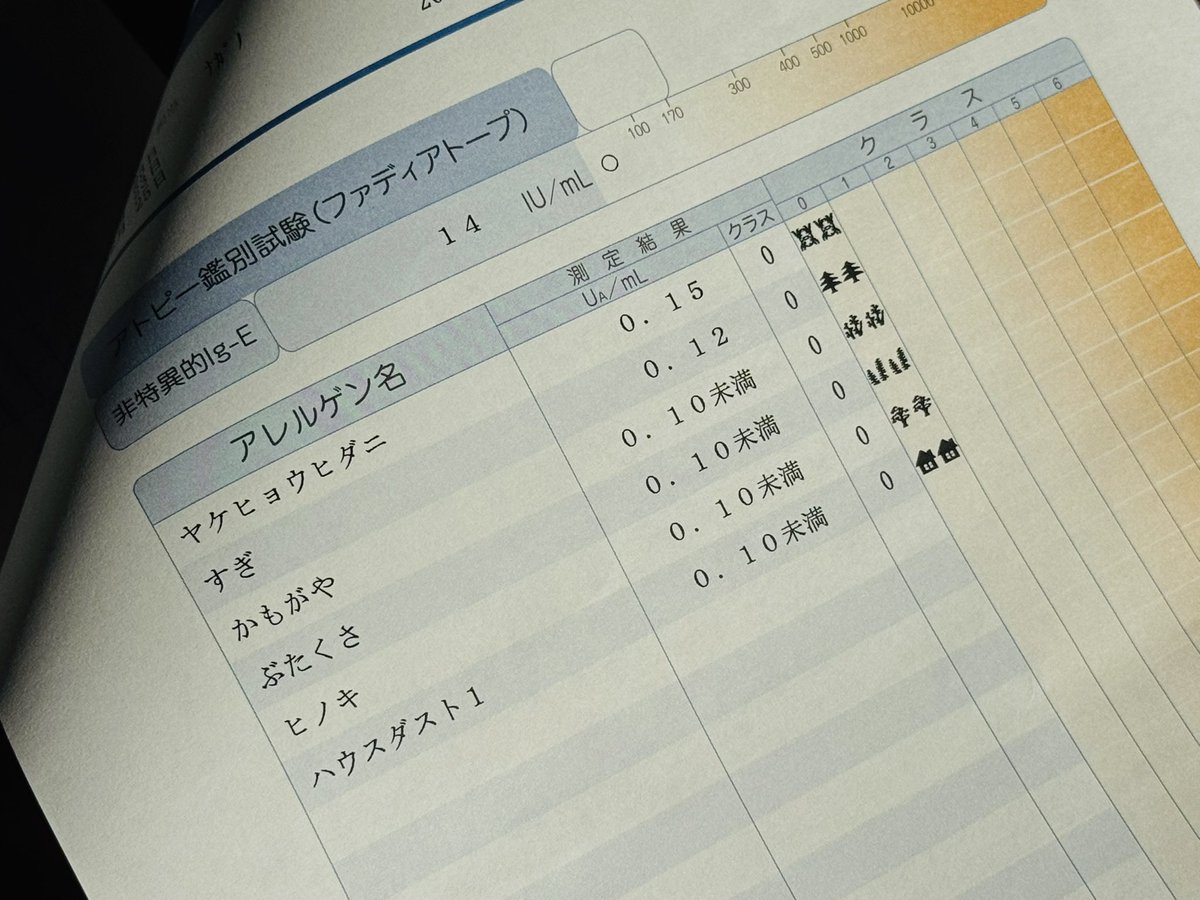 アトピー鑑別試験(ファディアトープ)
非特異的Ig-E 14 IU/mL
100 170 300 400 500 1000 10000
アレルゲン名 測定結果 UA/mL クラス クラス 0 1 2 3 4 5 6
ヤケヒョウヒダニ 0.15 0
すぎ 0.12 0
かもがや 0.10未満 0
ぶたくさ 0.10未満 0
ヒノキ 0.10未満 0
ハウスダスト1 0.10未満 0